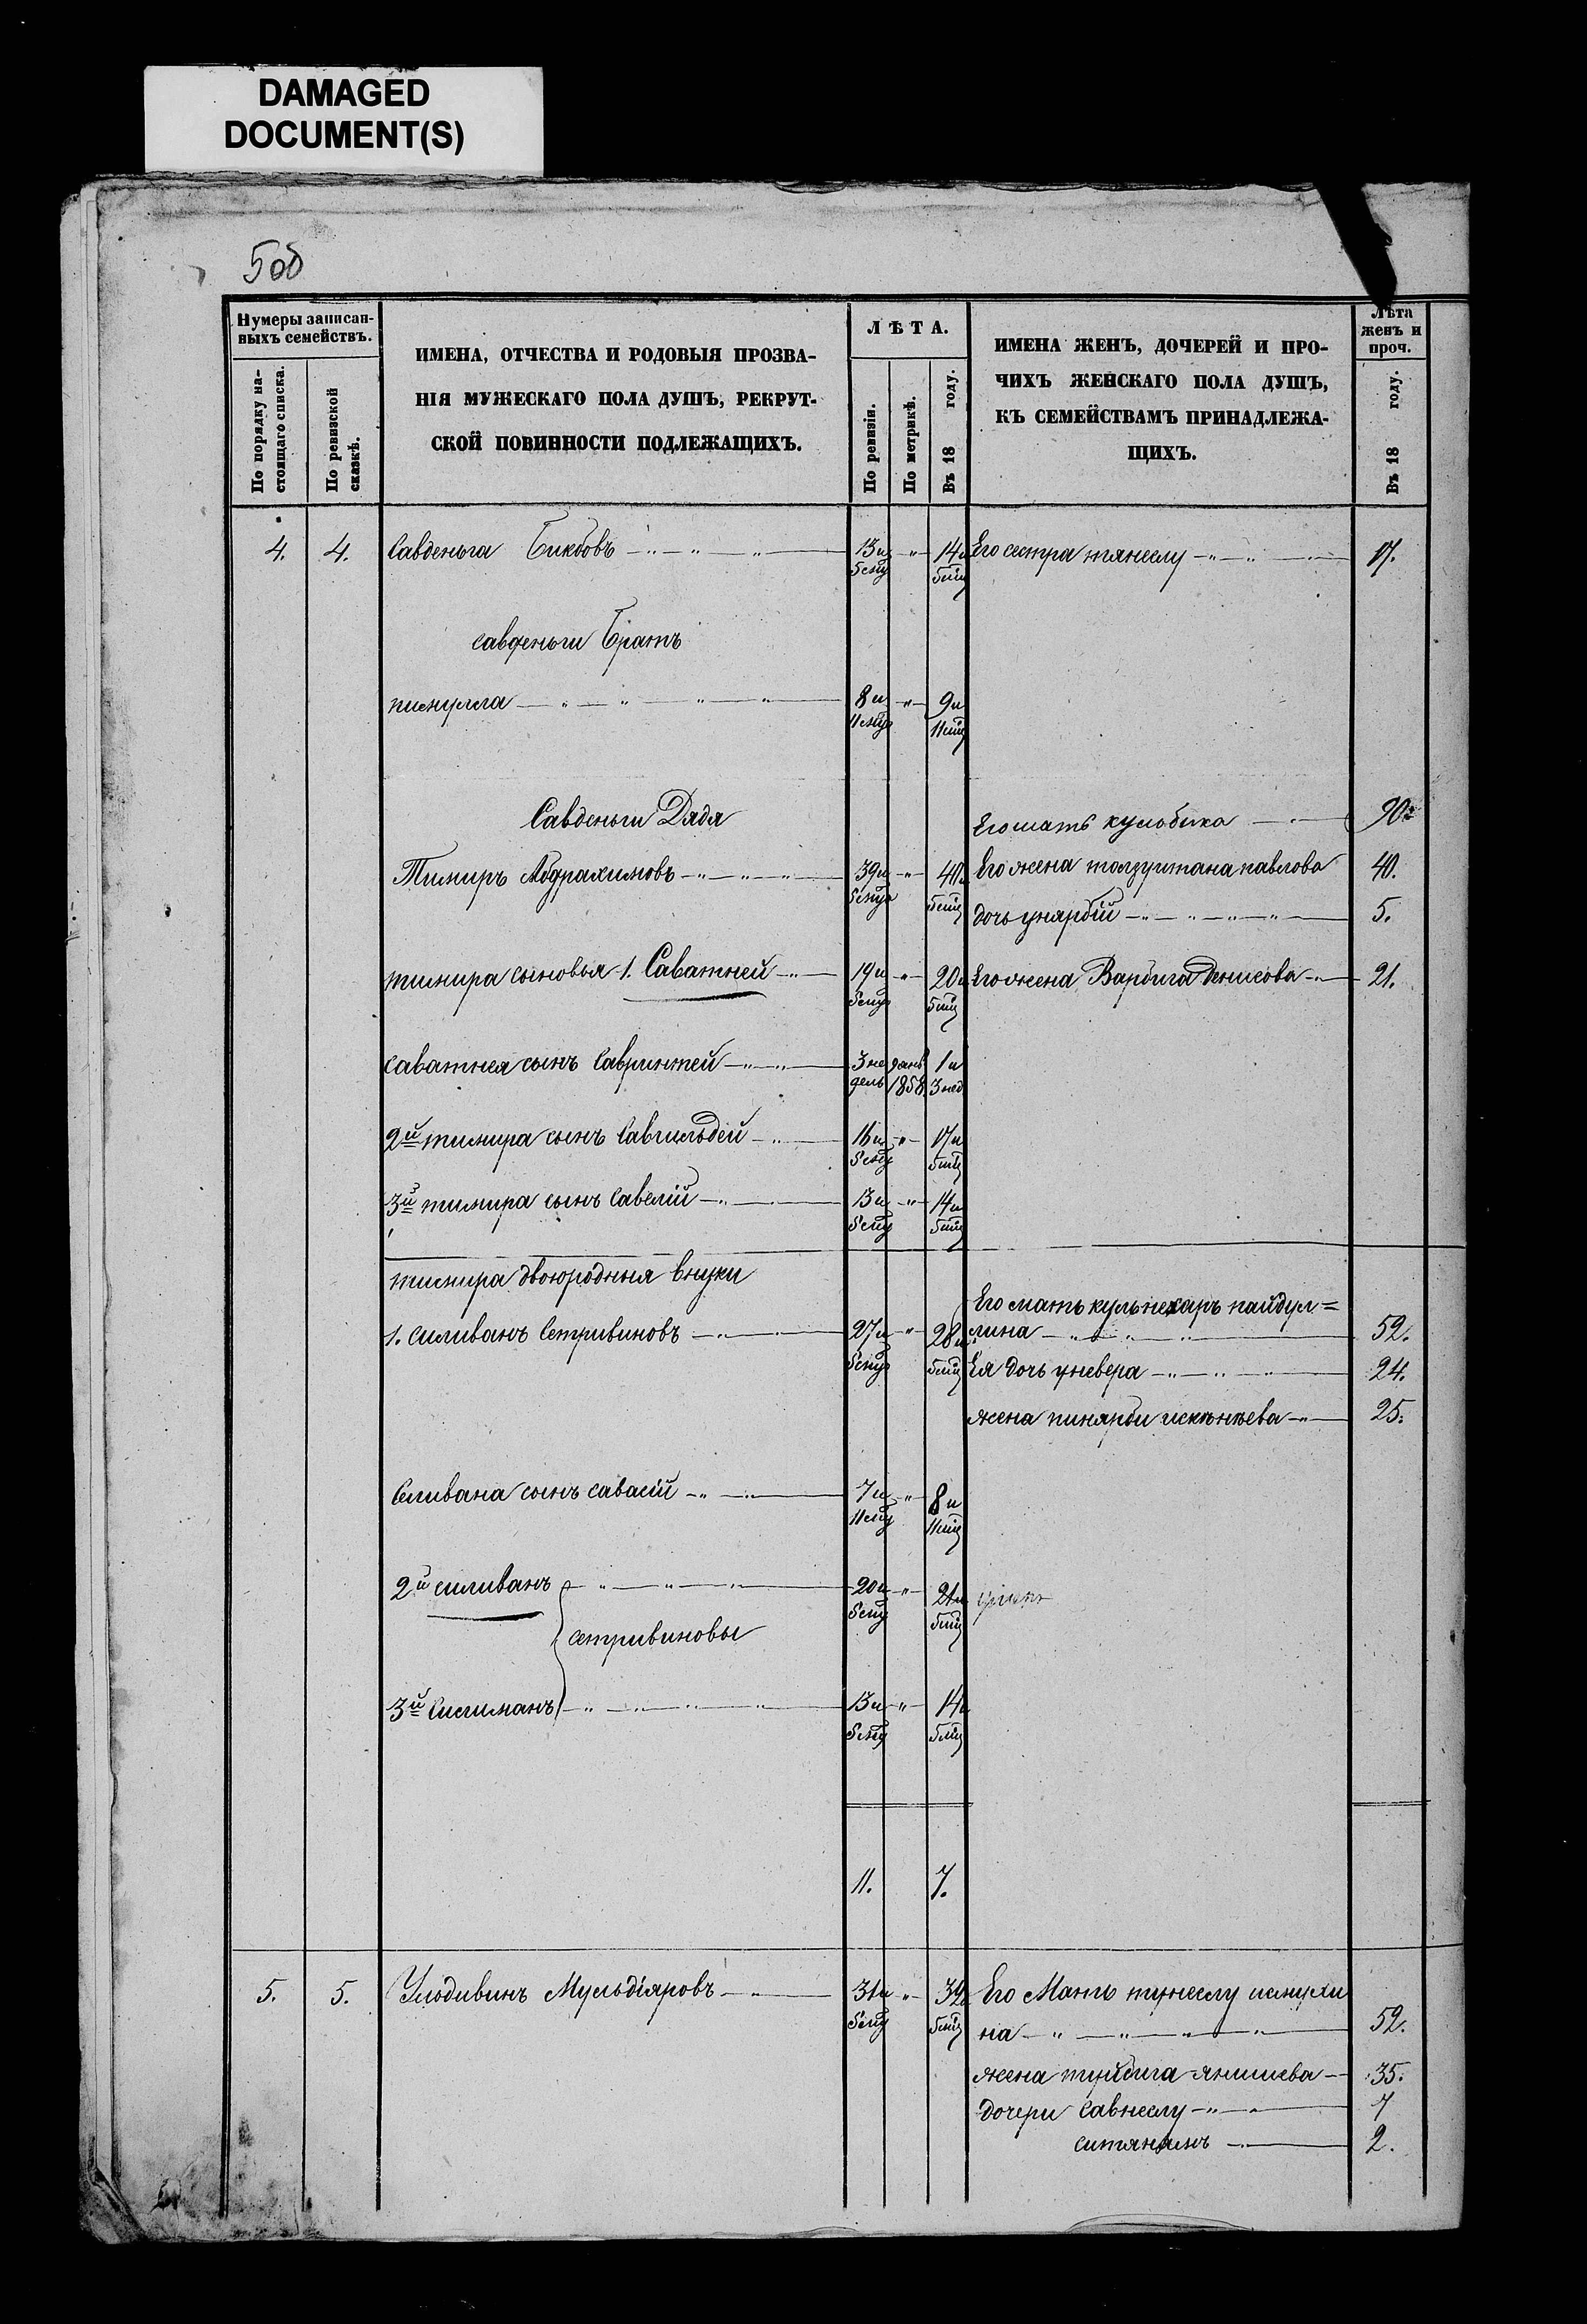 DAMAGED
DOCUMENT(S)
5об
Нумеры записан-
ныхъ семействъ.
По порядку на-
стоящаго списка.
По ревизской
сказкѣ.
ИМЕНА, ОТЧЕСТВА И РОДОВЫЯ ПРОЗВА-
НІЯ МУЖЕСКАГО ПОЛА ДУШЪ, РЕКРУТ-
СКОЙ ПОВИННОСТИ ПОДЛЕЖАЩИХЪ.
ЛѢТА.
По ревизіи.
По метрикѣ.
Въ 18 году.
ИМЕНА ЖЕНЪ, ДОЧЕРЕЙ И ПРО-
ЧИХЪ ЖЕНСКАГО ПОЛА ДУШЪ,
КЪ СЕМЕЙСТВАМЪ ПРИНАДЛЕЖА-
ЩИХЪ.
Лѣта
женъ и
проч.
Въ 18 году.
4. 4. Савденьга Бикбовъ 13 и 5 мц " 14 и 5 мц Его сестра тянеслу 17.
савденьги Братъ
8 и 11 мц " 9 и 11 мц
Савденьги Дядя
Его мать кульбика 90
Тимиръ Абдрахимовъ 39 и 5 мц " 40 и 5 мц Его жена павлова 40.
дочь унярбій 5.
тимира сыновья 1. Саватней 19 и 5 мц " 20 и 5 мц Его жена Варбига Денисова 21.
саватнея сынъ Савринтей 3 не дель янв 1858 1 и 3 нед
2й тимира сынъ Савгильдей 16 и 5 мц " 17 и 5 мц
3й тимира сынъ Савелій 13 и 5 мц " 14 и 5 мц
тимира двоюродныя внуки
Его мать кульнехаръ пайдул=
1. силиванъ Сетривиновъ 27 и 5 мц " 28 и 5 мц лина 52.
Ея дочь уневера 24.
жена пинярби 25.
Селивана сынъ савасій 7 и 11 мц " 8 и 11 мц
2й силиванъ 20 и 5 мц " 21 и 5 мц
сетривиновы
3й Силиманъ 13 и 5 мц " 14 и 5 мц
11. 7.
5. 5. Ульдивинъ Мульдіяровъ 31 и 5 мц " 32 и 5 мц Его Мать тунеслу исмухи
на 52.
жена туйбига янишева 35.
дочери Савнеслу 7
2.